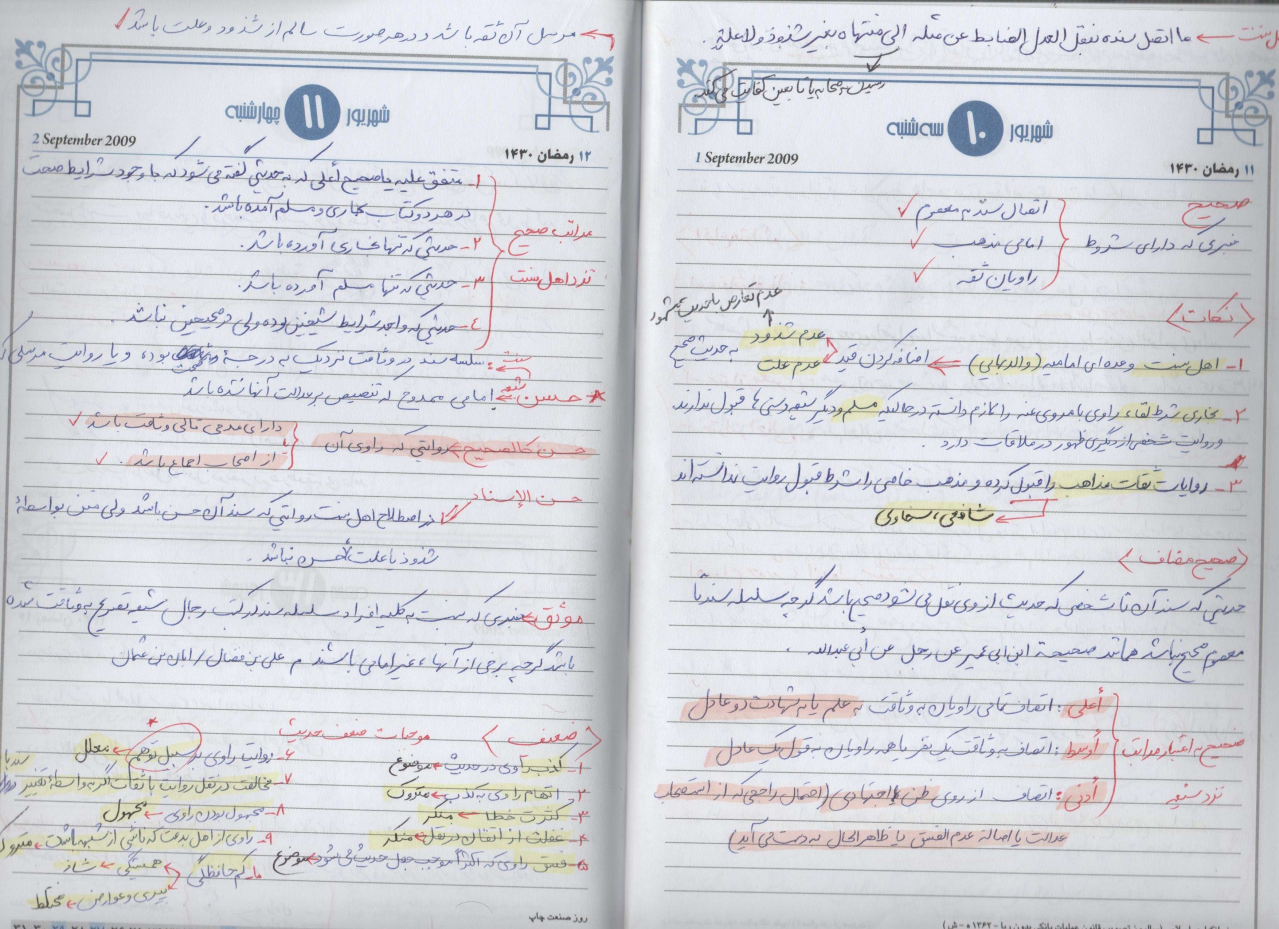 ل سنت ← ما اتصل سنده بنقل العدل الضابط عن مثله الی منتهاه بغیر شذوذ ولا علة.
رسیدن به صحابه یا تابعین کفایت می‌کند
شهریور ۱۰ سه شنبه
۱۱ رمضان ۱۴۳۰
1 September 2009
صحیح
خبری که دارای شروط
اتصال سند به معصوم ✓
امامی مذهب ✓
راویان ثقه ✓
عدم تعارض با حدیث مشهور
<نکات>
۱- اهل سنت و عده ای امامیه (والد بهایی) ← اضافه کردن قید عدم شذوذ عدم علت به حدیث صحیح
۲- بخاری شرط لقاء راوی با مروی عنه را لازم دانسته در حالیکه مسلم و دیگر شیعه و سنی ها قبول ندارند
و روایت شخص از دیگری ظهور در ملاقات دارد.
۳- روایات ثقات مذاهب را قبول کرده و مذهب خاصی را شرط قبول روایت ندانسته اند
← شافعی، سخاوی
<صحیح مضاف>
حدیثی که سند آن تا شخصی که حدیث از وی نقل می شود صحیح باشد گرچه سلسله سند تا
معصوم صحیح نباشد همانند صحیحة ابن ابی عمیر عن رجل عن أبی عبدالله.
صحیح به اعتبار مراتب نزد شیعه
أعلی: اتصاف تمامی راویان به وثاقت به علم یا به شهادت دو عادل
أوسط: اتصاف به وثاقت یک نفر یا همه راویان به قول یک عادل
أدنی: اتصاف از روی ظن اجتهادی (احتمال راجحی که از استصحاب
عدالت یا اصالة عدم الفسق یا ظاهر الحال به دست می آید)
← مرسل آن ثقه باشد و در هر صورت سالم از شذوذ و علت باشد
شهریور ۱۱ چهارشنبه
۱۲ رمضان ۱۴۳۰
2 September 2009
مراتب صحیح نزد اهل سنت
۱- متفق علیه یا صحیح أعلی که به حدیثی گفته می شود که با وجود شرایط صحت
در هر دو کتاب بخاری و مسلم آمده باشد.
۲- حدیثی که تنها بخاری آورده باشد.
۳- حدیثی که تنها مسلم آورده باشد.
٤- حدیثی که واجد شرایط شیخین بوده ولی در صحیحین نباشد.
سنت: سلسه سند در وثاقت نزدیک به درجۀ بوده، و یا روایت مرسلی که
حسن شیعه ← امامی ممدوح که تنصیص بر عدالت آنها نشده باشد
حسن کالصحیح ← روایتی که راوی آن
دارای مدحی تالی وثاقت باشد ✓
یا از اصحاب اجماع باشد. ✓
حسن الإسناد
در اصطلاح اهل سنت روایتی که سند آن حسن باشد ولی متن بواسطۀ
شذوذ یا علت، حسن نباشد.
موثق ← خبری که نسبت به کلیه افراد سلسله سند در کتب رجال شیعه تصریح به وثاقت شده
باشد گرچه برخی از آنها، غیر امامی باشند م علی بن فضال / ابان بن عثمان
<ضعیف> موجبات ضعف حدیث
۱- کذب راوی در حدیث ← موضوع
۲- اتهام راوی به کذب ← متروک
۳- کثرت خطا ← منکر
۴- غفلت از اتقان در نقل ← منکر
۵- فسق راوی که اکثراً موجب جعل حدیث می شود ← موضوع
۶- روایت راوی بر سبیل توهم ← معلل
۷- مخالفت در نقل روایت با ثقات اگر به واسطۀ تغییر
۸- مجهول بودن راوی ← مجهول
۹- راوی از اهل بدعت که ناشی از شبهه باشد ← متروک
۱۰- کم حافظگی
همیشگی ← شاذ
پیری و عوارض ← مختلط
روز صنعت چاپ